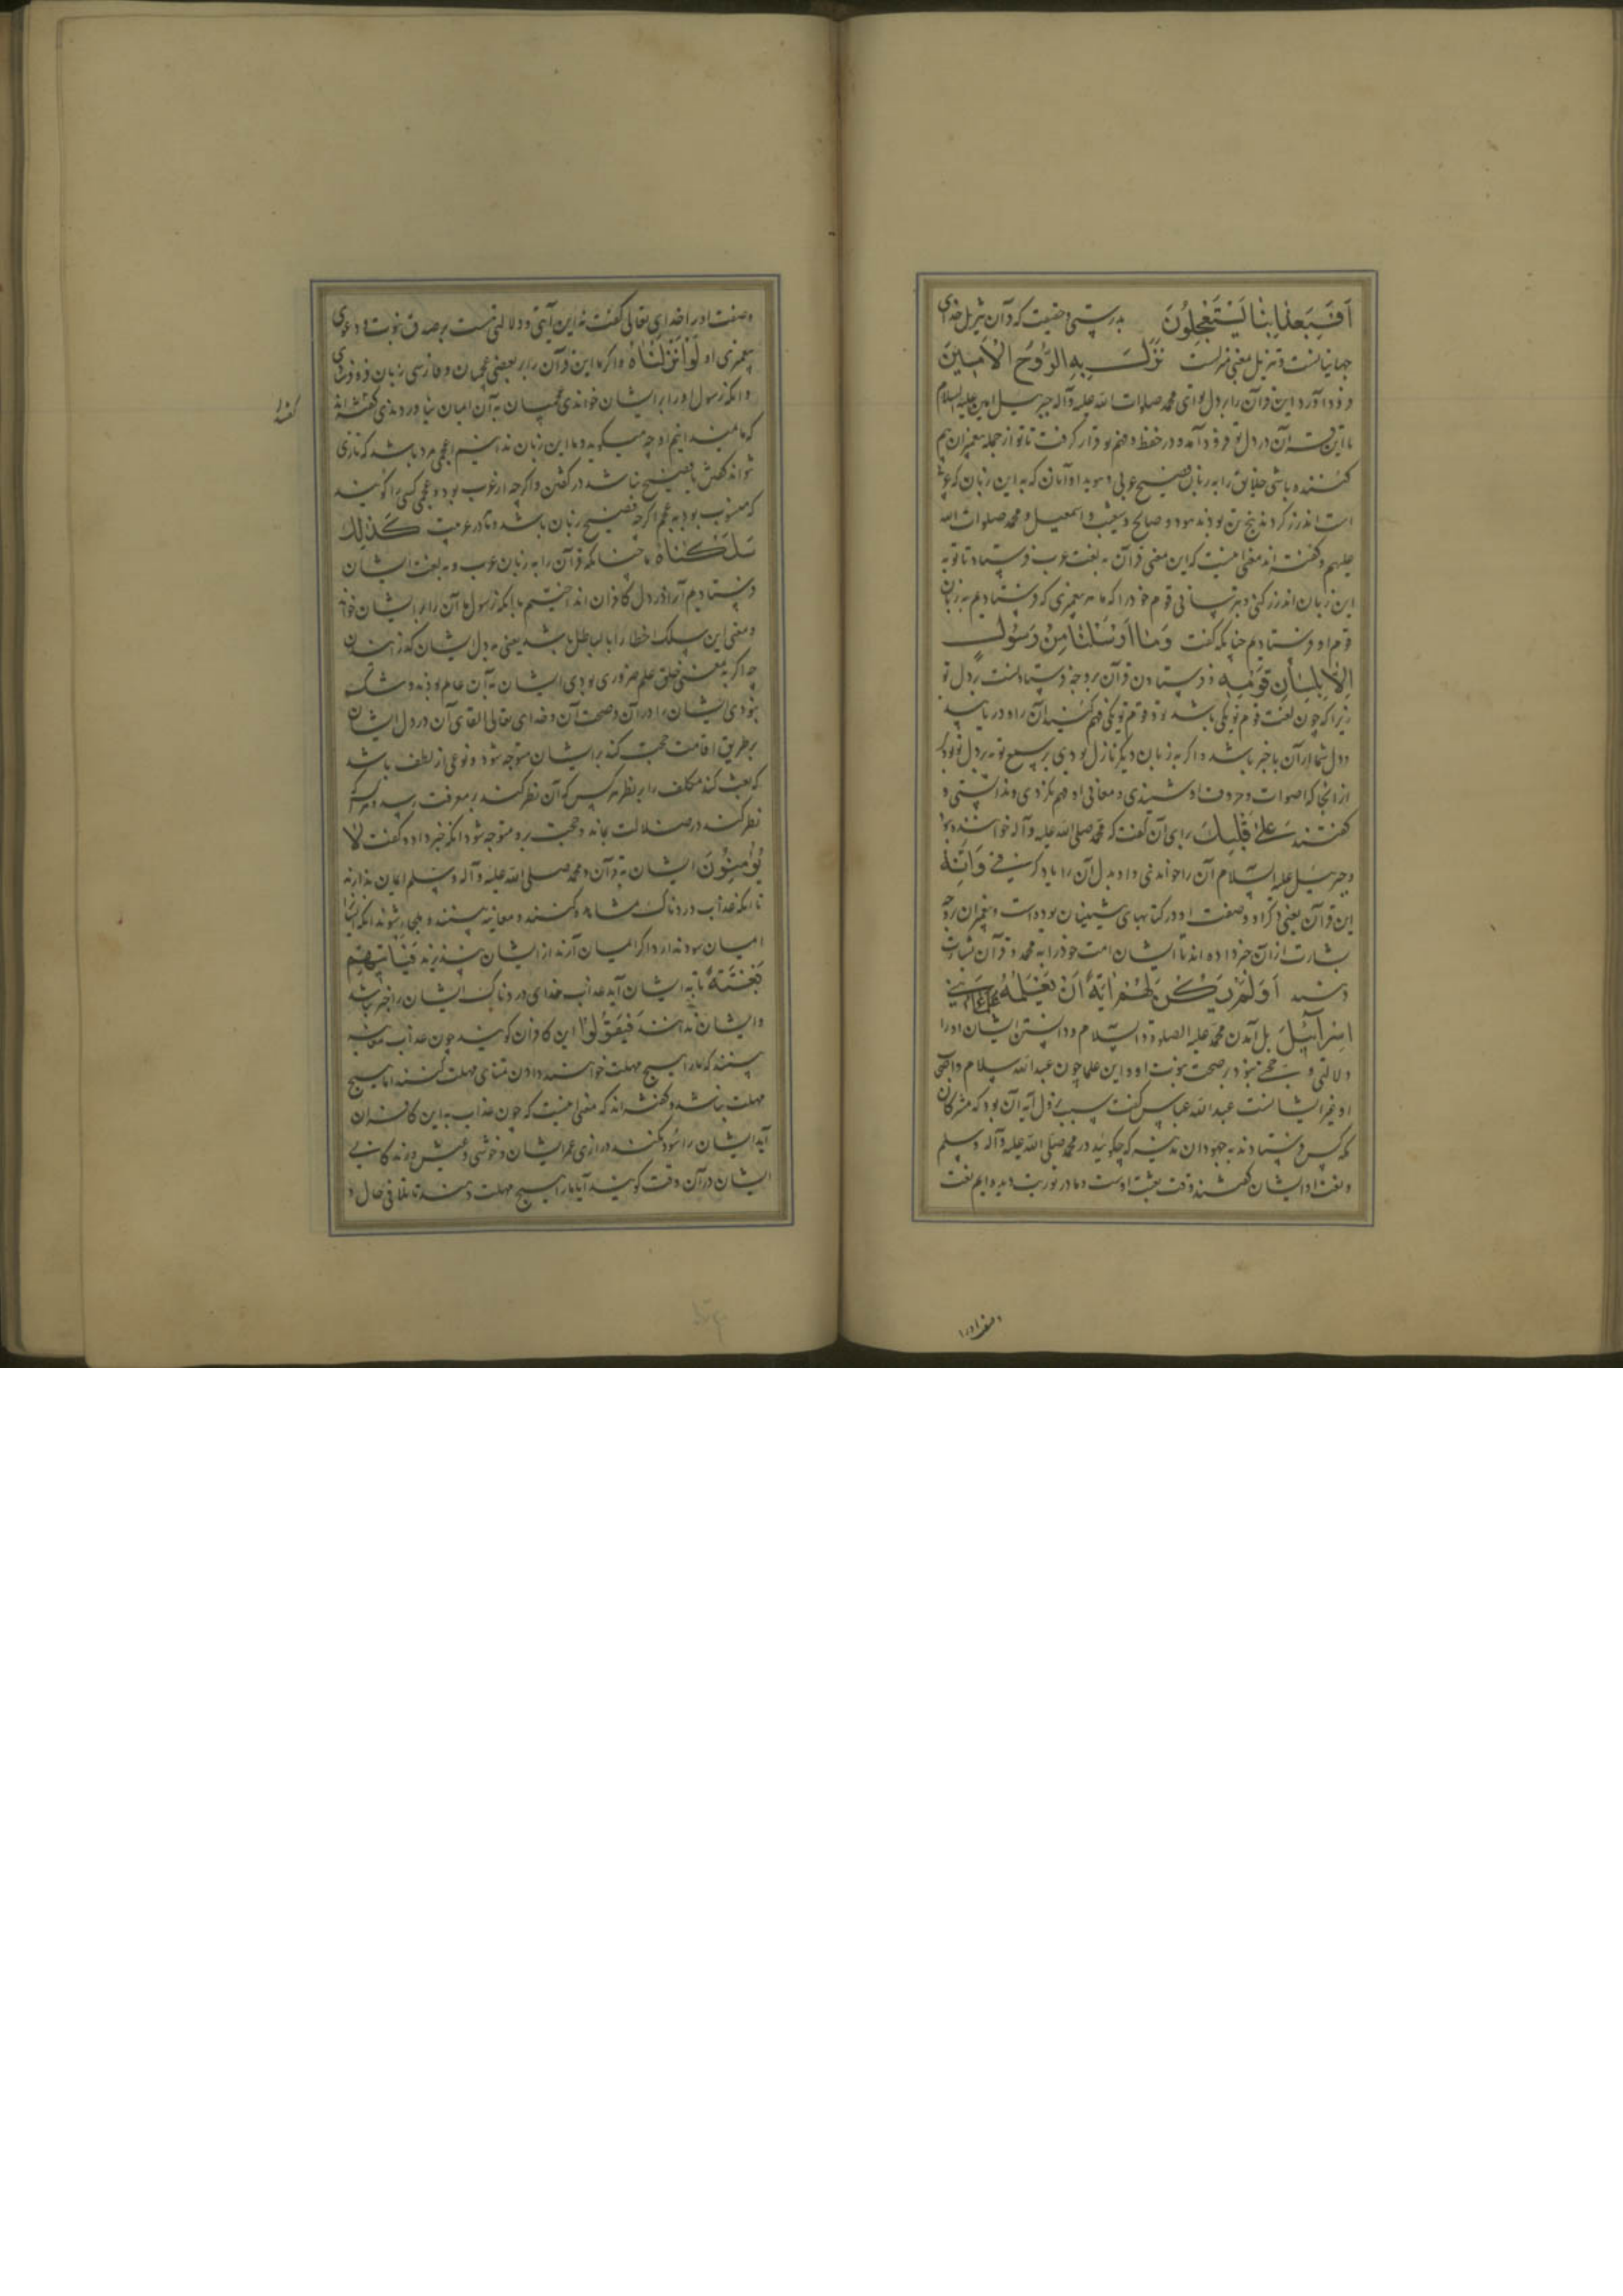 اَفَبِعَذابِنا يَسْتَعْجِلُونَ بدرستی و حقیقت که قرآن تنزیل خدای
جهانیانست و تنزیل بمعنی منزلست نَزَلَ بِهِ الرُّوحُ الْاَمِینُ
فرود آورد این قرآن را بر دل تو ای محمد صلوات الله علیه و آله جبرئیل امین علیه السلام
تا این قرآن در دل تو فرود آمد و در حفظ و فهم تو قرار گرفت تا تو از جمله پیغمبران بیم
کننده باشی خلایق را به زبان فصیح عربی هویدا و آنان که به این زبان که عربی
است انذار کردند پنج تن بودند هود و صالح و شعیب و اسمعیل و محمد صلوات الله
علیهم و گفته‌اند معنی اینست که این معنی قرآن به لغت عرب فرستاد تا تو به
این زبان انذار کنی و بترسانی قوم خود را که ما هر پیغمبری که فرستادیم به زبان
قوم او فرستادیم چنانکه گفت وَمَا اَرْسَلْنَا مِنْ رَسُولٍ
اِلّا بِلِسَانِ قَوْمِهِ و فرستادن قرآن بر وجه فرستادنست بر دل تو
زیرا که چون لغت قوم تو یکی باشد تو و قوم تو یکی فهم کنید آن را و دریابید
و دل شما از آن با خبر باشد و اگر به زبان دیگر نازل بودی بر سمع تو نه بر دل تو بودی
از آنجا که اصوات و حروف او شنیدی و معانی او فهم نکردی و ندانستی و
گفتند عَلٰی قَلْبِكَ برای آن گفت که محمد صلی الله علیه و آله خواننده بود
و جبرئیل علیه السلام آن را خواندنی و او به دل آن را یاد گرفتی وَاِنَّهُ
این قرآن یعنی ذکر او و صفت او در کتابهای پیشینیان بوده است و پیغمبران بر وجه
بشارت از آن خبر داده‌اند تا ایشان امت خود را به محمد و قرآن بشارت
دهند اَوَلَمْ يَكُنْ لَهُمْ اٰيَةً اَنْ يَعْلَمَهُ عُلَمٰٓؤُا بَنِي
اِسْرَآئِيلَ بل آمدن محمد علیه الصلوة و السلام و دانستن ایشان او را
دلالتی و حجتی نبود در صحت نبوت او و این علما چون عبد الله سلام و اصحاب
او غیر ایشانست عبد الله عباس گفت سبب نزول آیه آن بود که مشرکان
مکه کس فرستادند به جهودان مدینه که چگوئید در محمد صلی الله علیه و آله و سلم
و نعت او ایشان گفتند وقت بعثت اوست و ما در توریت دیده‌ایم نعت
وصف او را
و صفت او را خدای تعالی گفت نه این آیتی و دلالتی است بر صدق نبوت و دعوی
پیغمبری او لَوْ اَنْزَلْنَاهُ و اگر ما این قرآن را بر بعضی عجمیان و فارسی زبان فرو فرستادی
و آنکه رسول او را بر ایشان خواندی عجمیان به آن ایمان نیاوردندی گفته‌اند
که ما نمیدانیم او چه میگوید و ما این زبان ندانیم اعجمی مرد باشد که تازی
نتواند گفتن یا فصیح نباشد در گفتن و اگرچه از عرب بود و عجمی کسی را گویند
که منسوب بود به عجم اگرچه فصیح زبان باشد و نادر عربیت كَذٰلِكَ
سَلَكْنَاهُ ما چنانکه قرآن را به زبان عرب و به لغت ایشان
فرستادیم آن را در دل کافران انداختیم بآنکه رسول ما آن را بر ایشان خواند
و معنی این سلک اخطار را بالبال باشد یعنی به دل ایشان گذرانیدن
چه اگر به معنی خلق علم ضروری بودی ایشان به آن عالم بودند و شک
نبودی ایشان را در آن و صحت آن و خدای تعالی القای آن در دل ایشان
بر طریق اقامت حجت کند بر ایشان متوجه شود و نوعی از لطف باشد
که بعث کند مکلف را بر نظر هر کس که آن نظر کند به معرفت رسد و هر که
نظر نکند در ضلالت بماند و حجت بر او متوجه شود آنگه خبر داد و گفت لَا
يُؤْمِنُونَ ایشان به قرآن و محمد صلی الله علیه و آله و سلم ایمان ندارند
تا آنکه عذاب دردناک مشاهده کنند و معاینه بینند و ملجا شوند آنگه ایشان را
ایمان سود ندارد و اگر ایمان آرند از ایشان نپذیرند فَيَأْتِيَهُمْ
بَغْتَةً تا به ایشان آید عذاب خدای دردناک ایشان را خبر نباشد
و ایشان ندانند فَيَقُولُوا این کافران گویند چون عذاب معاینه
بینند که ما را هیچ مهلت خواهند دادن تمنای مهلت کنند اما هیچ
مهلت نباشد و گفته‌اند که معنی اینست که چون عذاب به این کافران
آید ایشان را سود نکند درازی عمر ایشان و خوشی و عیش و زندگانی
ایشان در آن وقت گویند آیا ما را هیچ مهلت دهند تا تلافی حال و